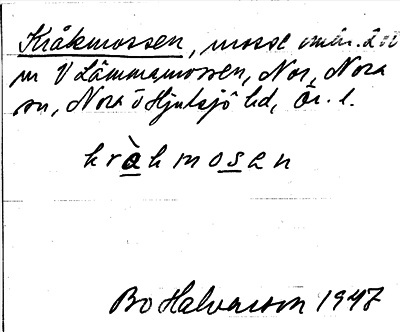 Kråkmossen, mosse omkr. 2
m V Lämmamossen, Nor, Nora
sn, Nora o Hjulsjö hd, Ör. l.
kràkmosen
Bo Halvarson 1947